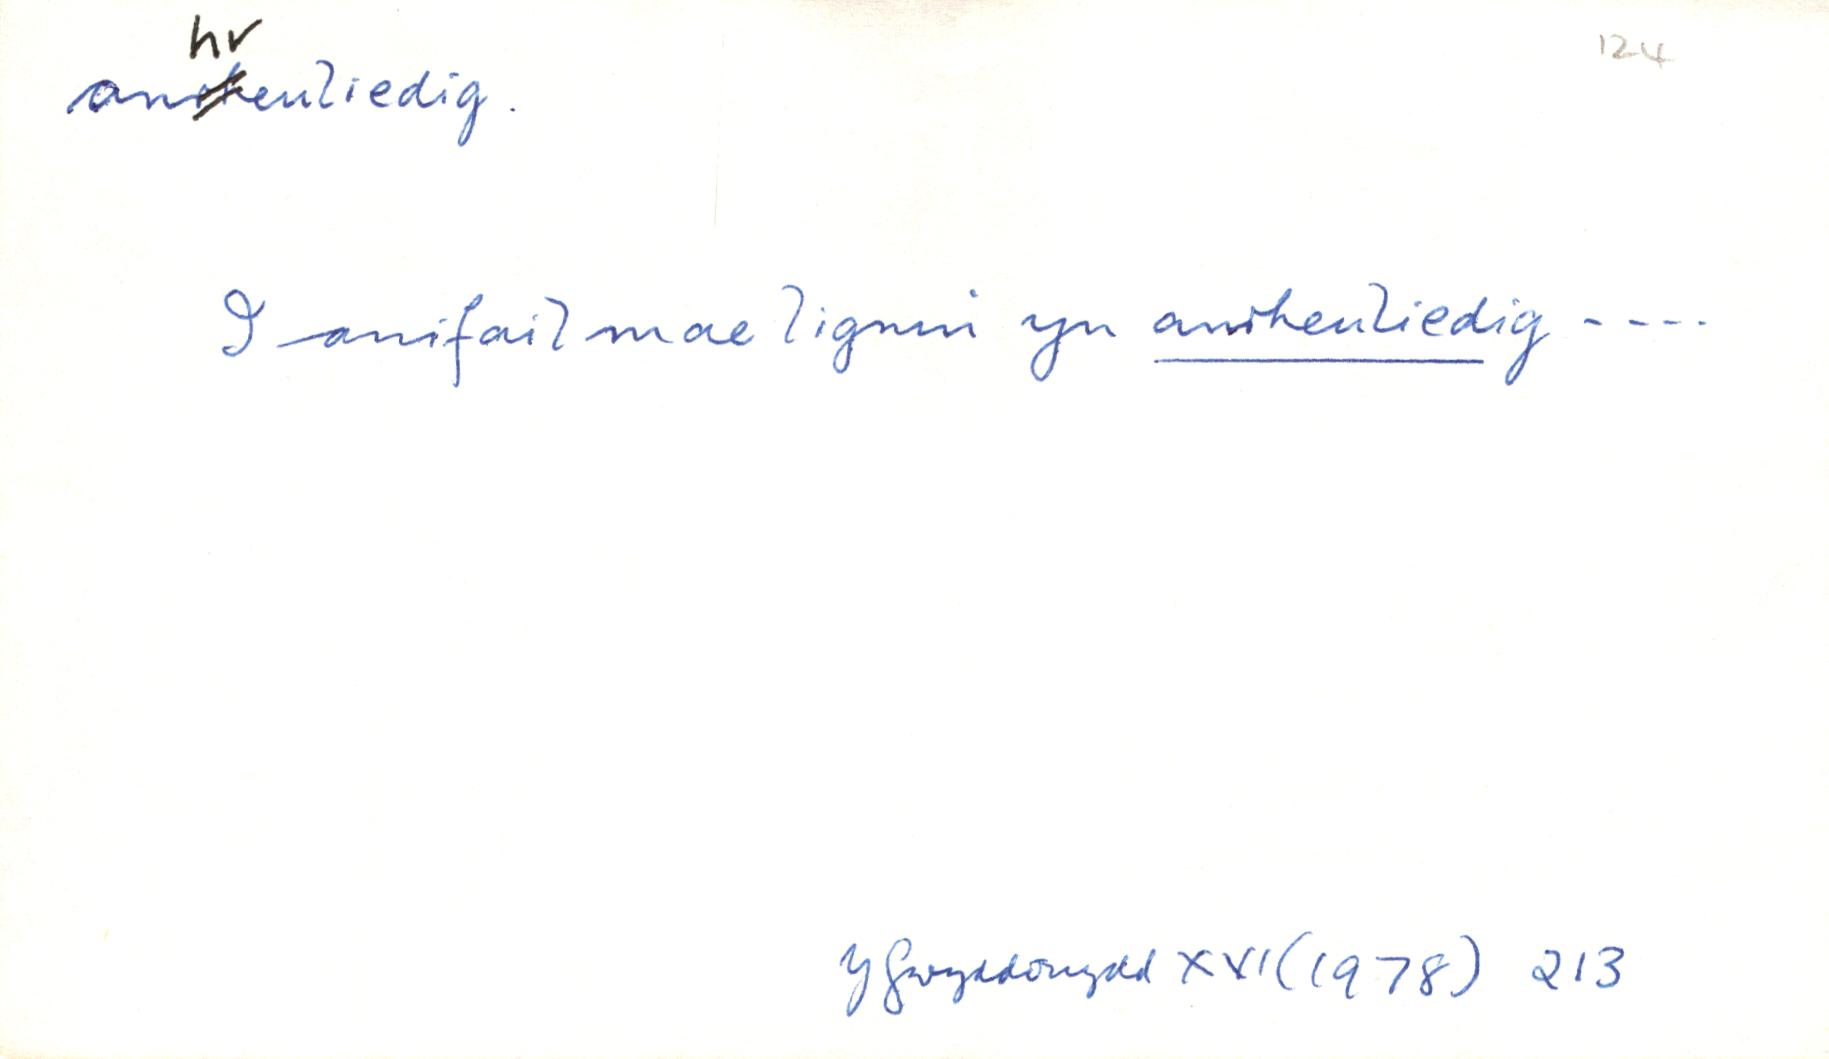 124
hr
anrheuliedig.
I anifail mae lignin yn anrheuliedig ----
Y Gwyddonydd XVI (1978) 213